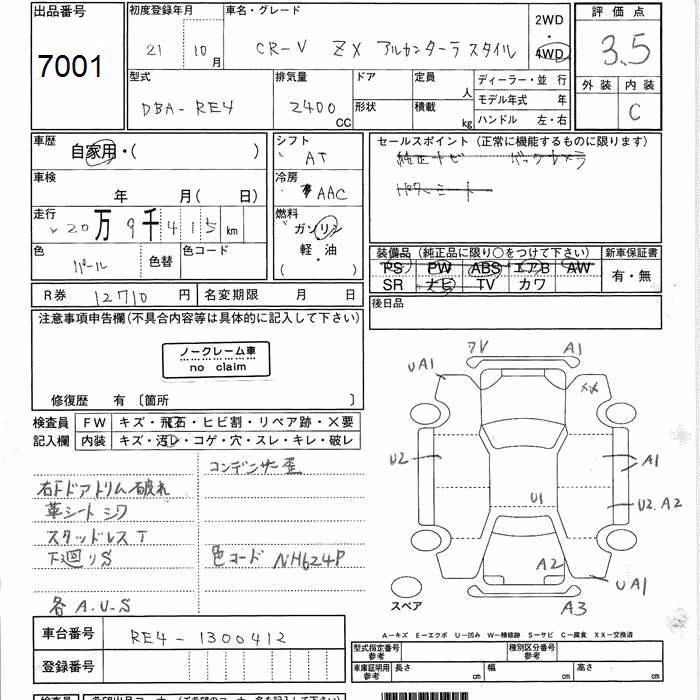 出品番号
7001
初度登録年月
21 10月
車名・グレード
CR-V ZX アルカンターラスタイル
2WD
・
4WD
評価点
3.5
外装 内装
C
型式
DBA-RE4
排気量
2400 CC
ドア
形状
定員 人
積載 kg
ディーラー・並行
モデル年式 年
ハンドル 左・右
車歴
自家用・( )
シフト
AT
セールスポイント(正常に機能するものに限ります)
純正ナビ バックカメラ
車検
年 月( 日)
冷房
AAC
走行
20万9千415km
燃料
ガソリン
軽・油
( )
色
パール
色替
色コード
装備品(純正品に限り○をつけて下さい)
PS PW ABS エアB AW
SR ナビ TV カワ
新車保証書
有・無
R券 12710円
名変期限 月 日
後日品
注意事項申告欄(不具合内容等は具体的に記入して下さい)
ノークレーム車
no claim
修復歴 有〔箇所 〕
検査員
記入欄
FW キズ・飛石・ヒビ割・リペア跡・×要
内装 キズ・汚レ・コゲ・穴・スレ・キレ・破レ
コンデンサー歪
右ドアトリム破れ
革シートシワ
スタッドレスT
下廻りS
色コード NH624P
各A.U.S
7V
A1
UA1
XX
U2
A1
U1
U2.A2
A2
UA1
A3
スペア
A-キズ E-エクボ U-凹み W-補修跡 S-サビ C-腐食 XX-交換済
車台番号
RE4-1300412
登録番号
型式指定番号
参考
種別区分番号
参考
車庫証明用
参考
長さ cm
幅 cm
高さ cm